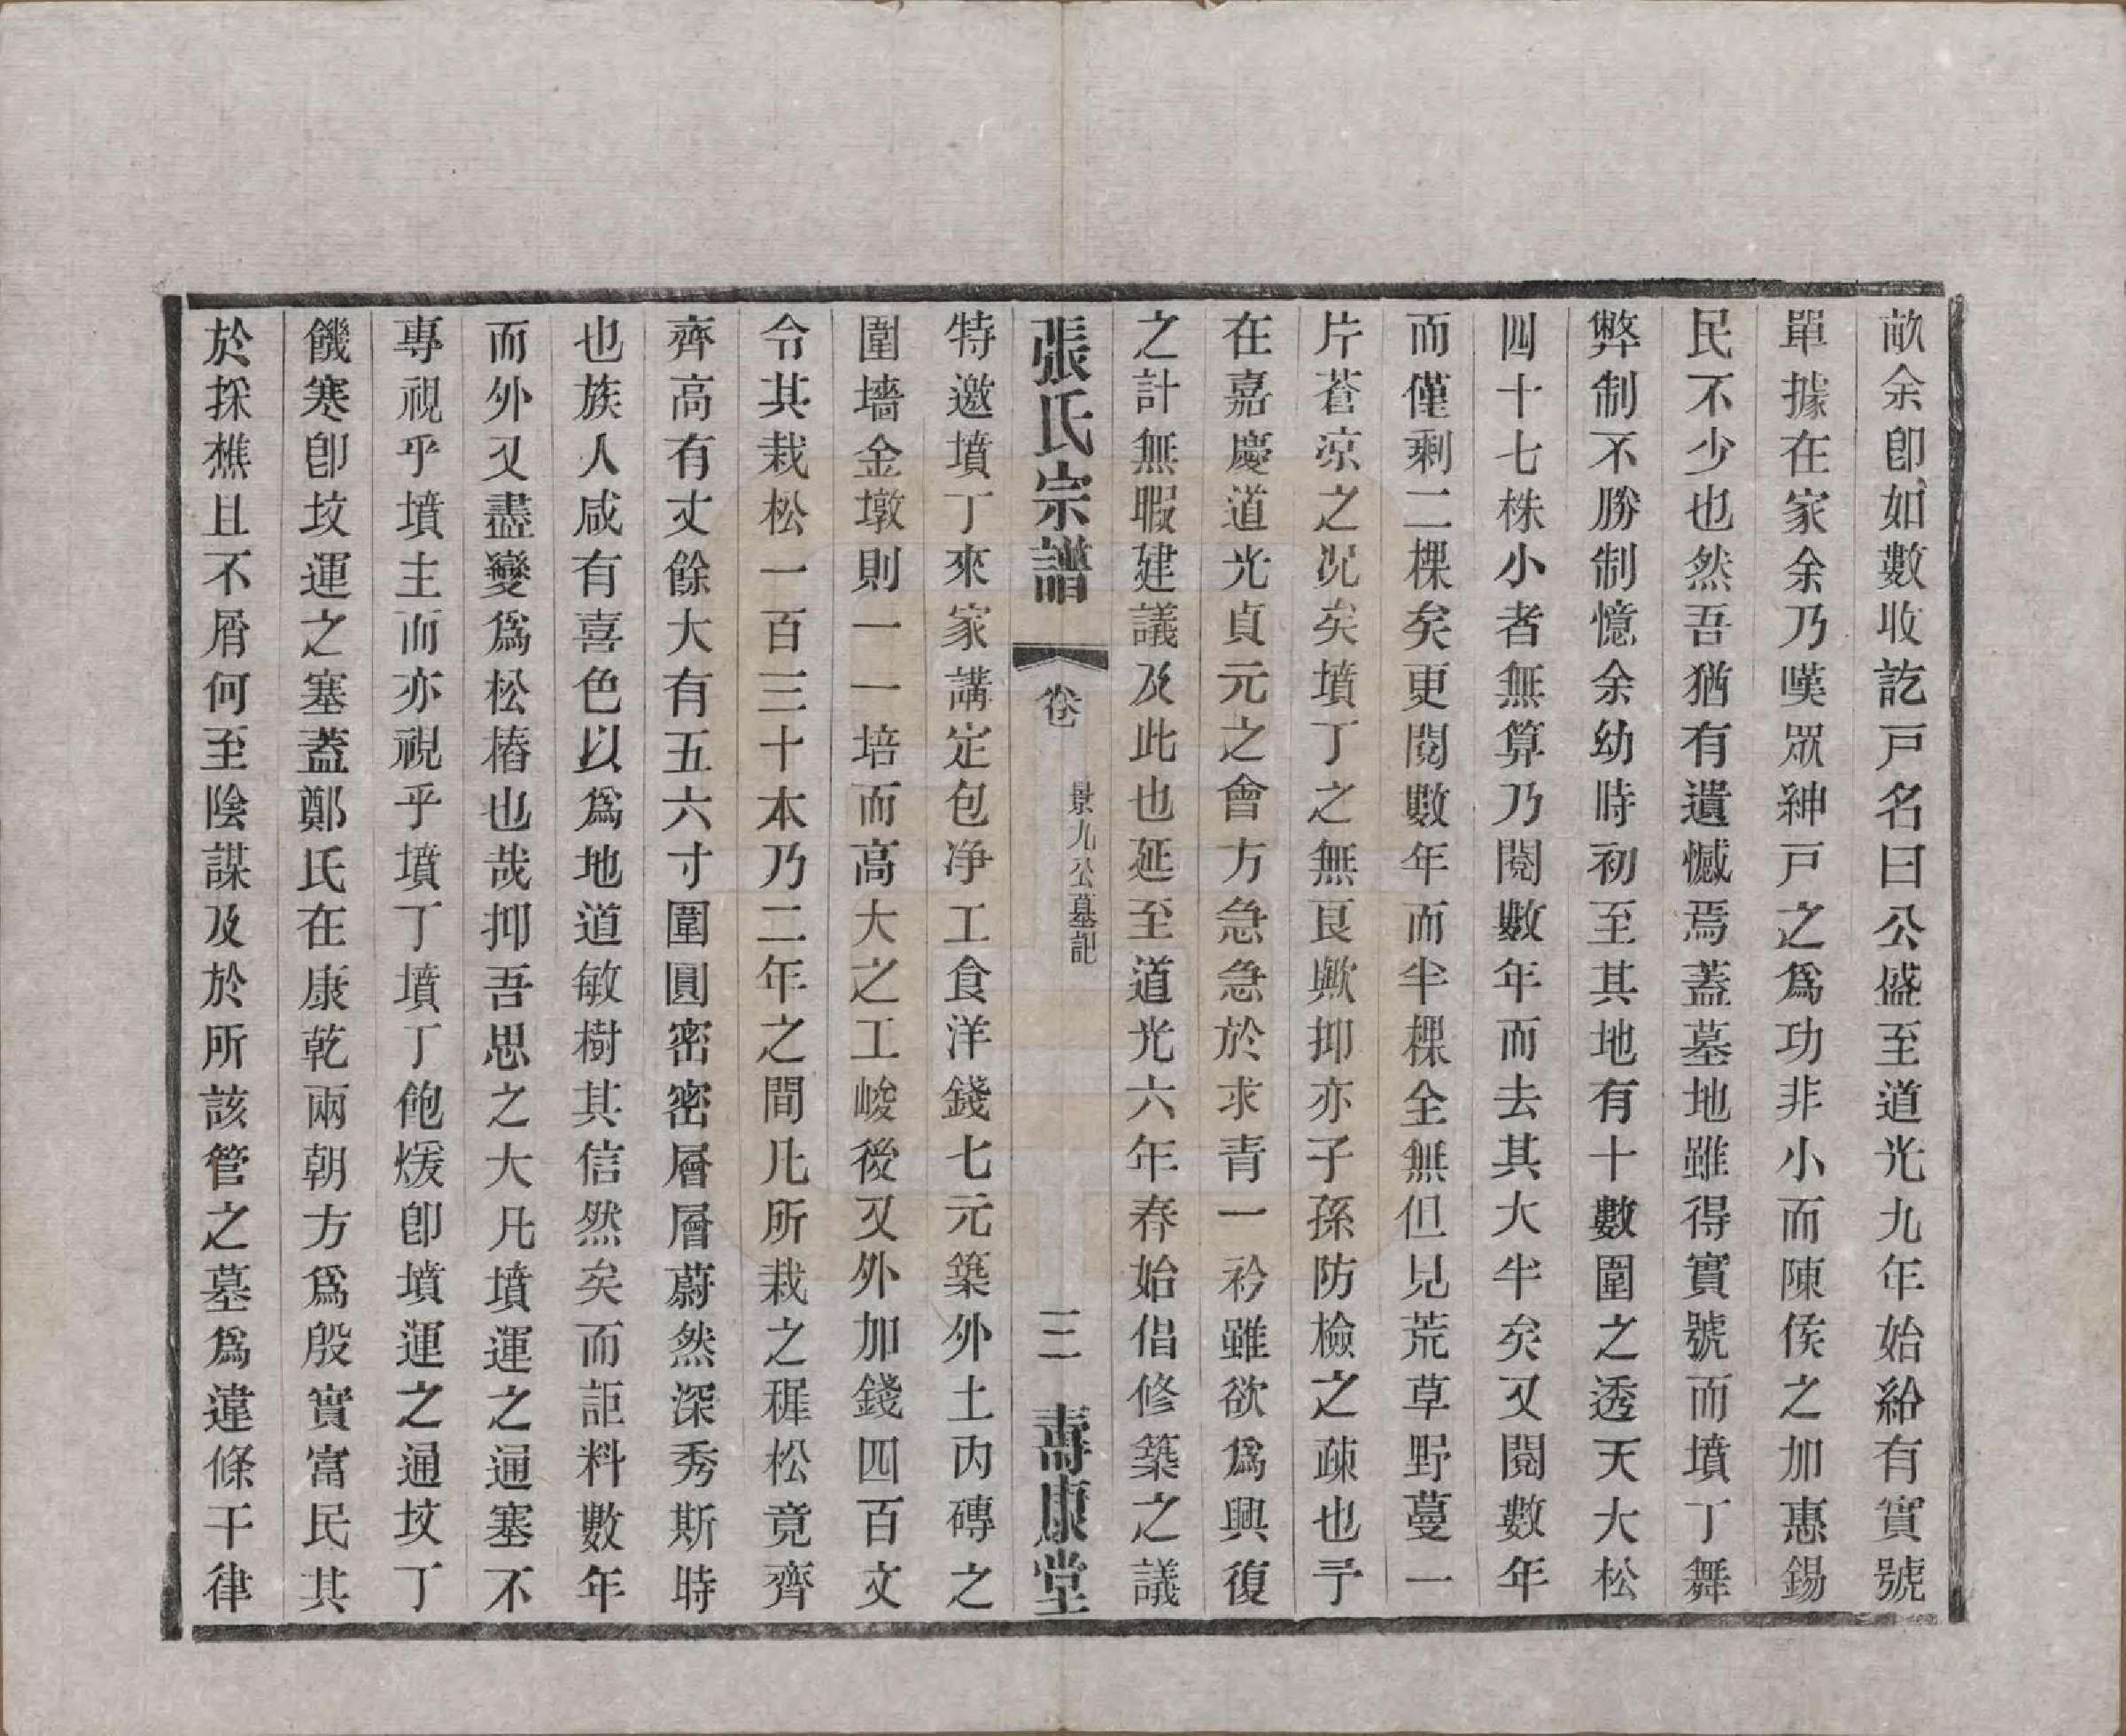 畝余卽如數收訖戸名曰公盛至道光九年始給有實號
單據在家余乃嘆眾紳戸之爲功非小而陳侯之加惠錫
民不少也然吾猶有遺憾焉蓋墓地雖得實號而墳丁舞
弊制不勝制憶余幼時初至其地有十數圍之透天大松
四十七株小者無算乃閱數年而去其大半矣又閱數年
而僅剩二棵矣更閱數年而半棵全無但見荒草野蔓一
片蒼涼之况矣墳丁之無良歟抑亦子孫防檢之疎也予
在嘉慶道光貞元之會方急急於求青一衿雖欲爲興復
之計無暇建議及此也延至道光六年春始倡修築之議
張氏宗譜 卷 景九公墓記 三 壽康堂
特邀墳丁來家講定包净工食洋錢七元築外土內磚之
圍墻金墩則一一培而高大之工峻後又外加錢四百文
令其栽松一百三十本乃二年之間凡所栽之穉松竟齊
齊高有丈餘大有五六寸圍圓密密層層蔚然深秀斯時
也族人咸有喜色以爲地道敏樹其信然矣而詎料數年
而外又盡變爲松樁也哉抑吾思之大凡墳運之通塞不
專視乎墳主而亦視乎墳丁墳丁飽煖卽墳運之通坟丁
饑寒卽坟運之塞蓋鄭氏在康乾兩朝方爲殷實富民其
於採樵且不屑何至陰謀及於所該管之墓爲違條干律